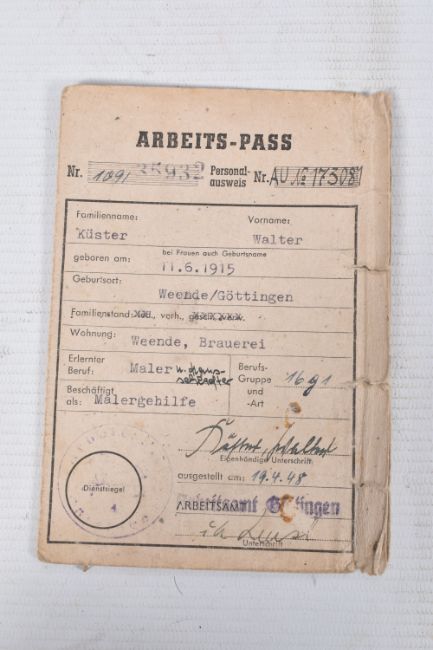 ARBEITS-PASS
Nr. 1091 35932 Personal-ausweis Nr. AU No 173081
Familienname: Vorname:
Küster Walter
bei Frauen auch Geburtsname
geboren am: 11.6.1915
Geburtsort:
Weende/Göttingen
Familienstand: verh.,
Wohnung: Weende, Brauerei
Erlernter Beruf: Maler u. Haus- Berufs-Gruppe und -Art 16 g1
Beschäftigt als: Malergehilfe
Küster, Walter
Eigenhändige Unterschrift
ausgestellt am: 19.4.48
Dienstsiegel
ARBEITSAMT Arbeitsamt Göttingen
Unterschrift